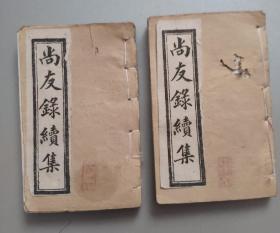 尚友錄續集
尚友錄續集